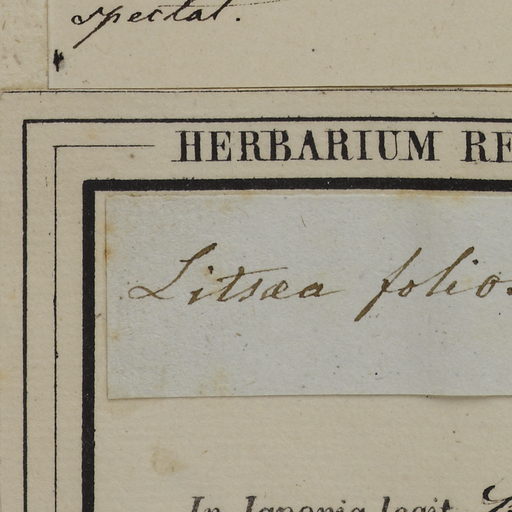 spectat.
HERBARIUM RE
Litsæa folio
In Japonia legit